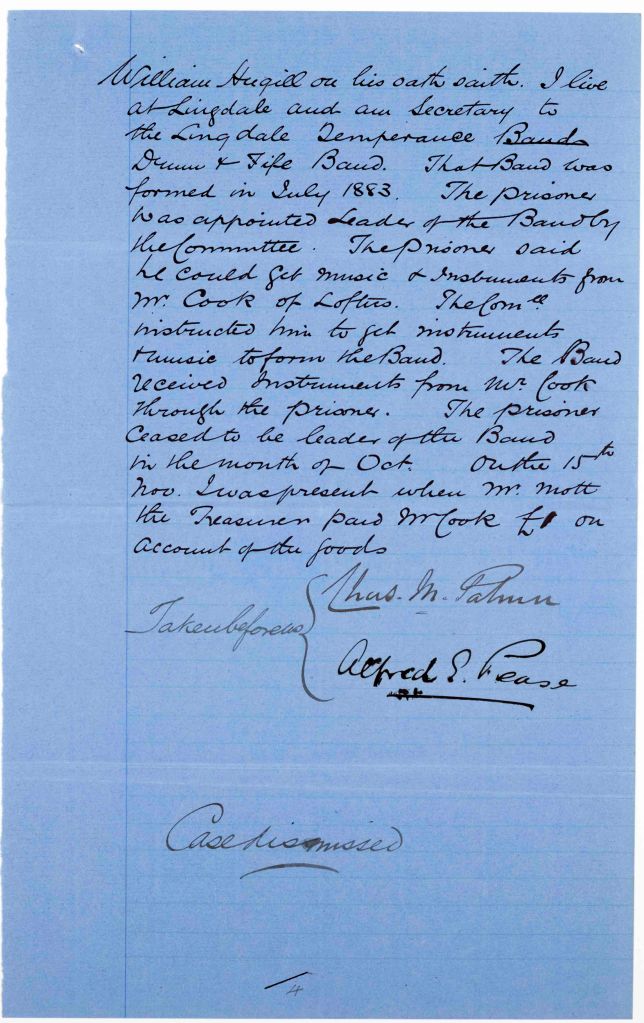 William Hugill on his oath saith. I live
at Lingdale and am Secretary to
the Lingdale Temperance Band
Drum & Fife Band. That Band was
formed in July 1883. The prisoner
was appointed Leader of the Band by
the Committee. The Prisoner said
he could get music & Instruments from
Mr. Cook of Loftus. The Com.ee
instructed him to get instruments
& music to form the Band. The Band
received Instruments from Mr. Cook
through the prisoner. The prisoner
Ceased to be leader of the Band
in the month of Oct. On the 15th
Nov. I was present when Mr. Mott
the Treasurer paid Mr Cook £1 on
Account of the goods
Taken before us
Chas. M. Palmer
Alfred E. Pease
Case dismissed
4